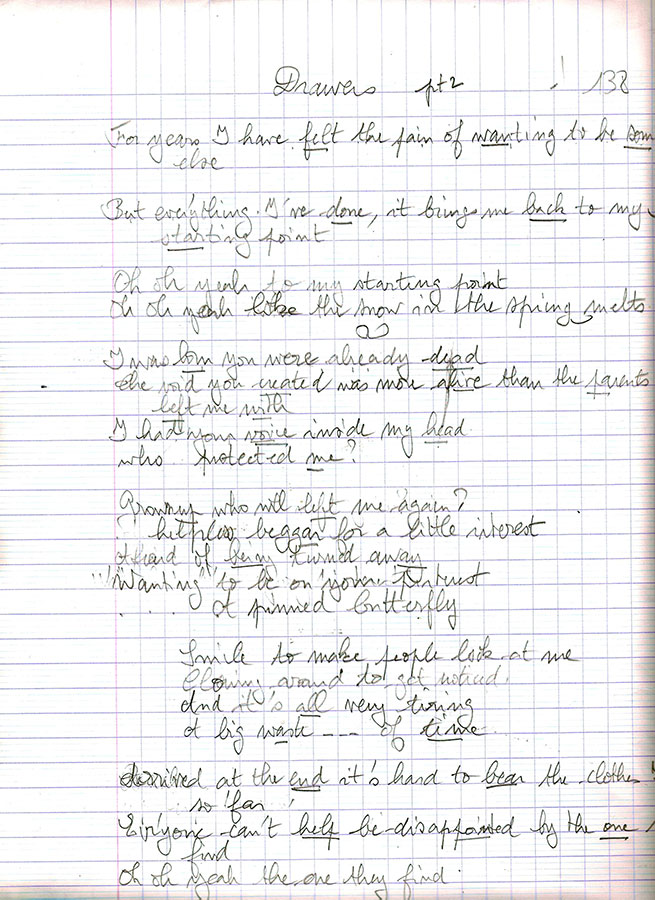 Drawers pt2 138
For years I have felt the pain of wanting to be som
else
But everything I've done, it brings me back to my
starting point
Oh oh yeah to my starting point
Oh oh yeah like the snow in the spring melts
I was born you were already dead
the void you created was more alive than the parents
left me with
I had your voice inside my head
who protected me?
Grownup who will left me again?
helpless beggar for a little interest
afraid of being turned away
"Wanting" to be on your interest
A pinned butterfly
Smile to make people look at me
Clowning around to get noticed.
And it's all very tiring
A big waste --- of time
Arrived at the end it's hard to bear the clothes
so far
Everyone can't help be disappointed by the one
find
Oh oh yeah the one they find.